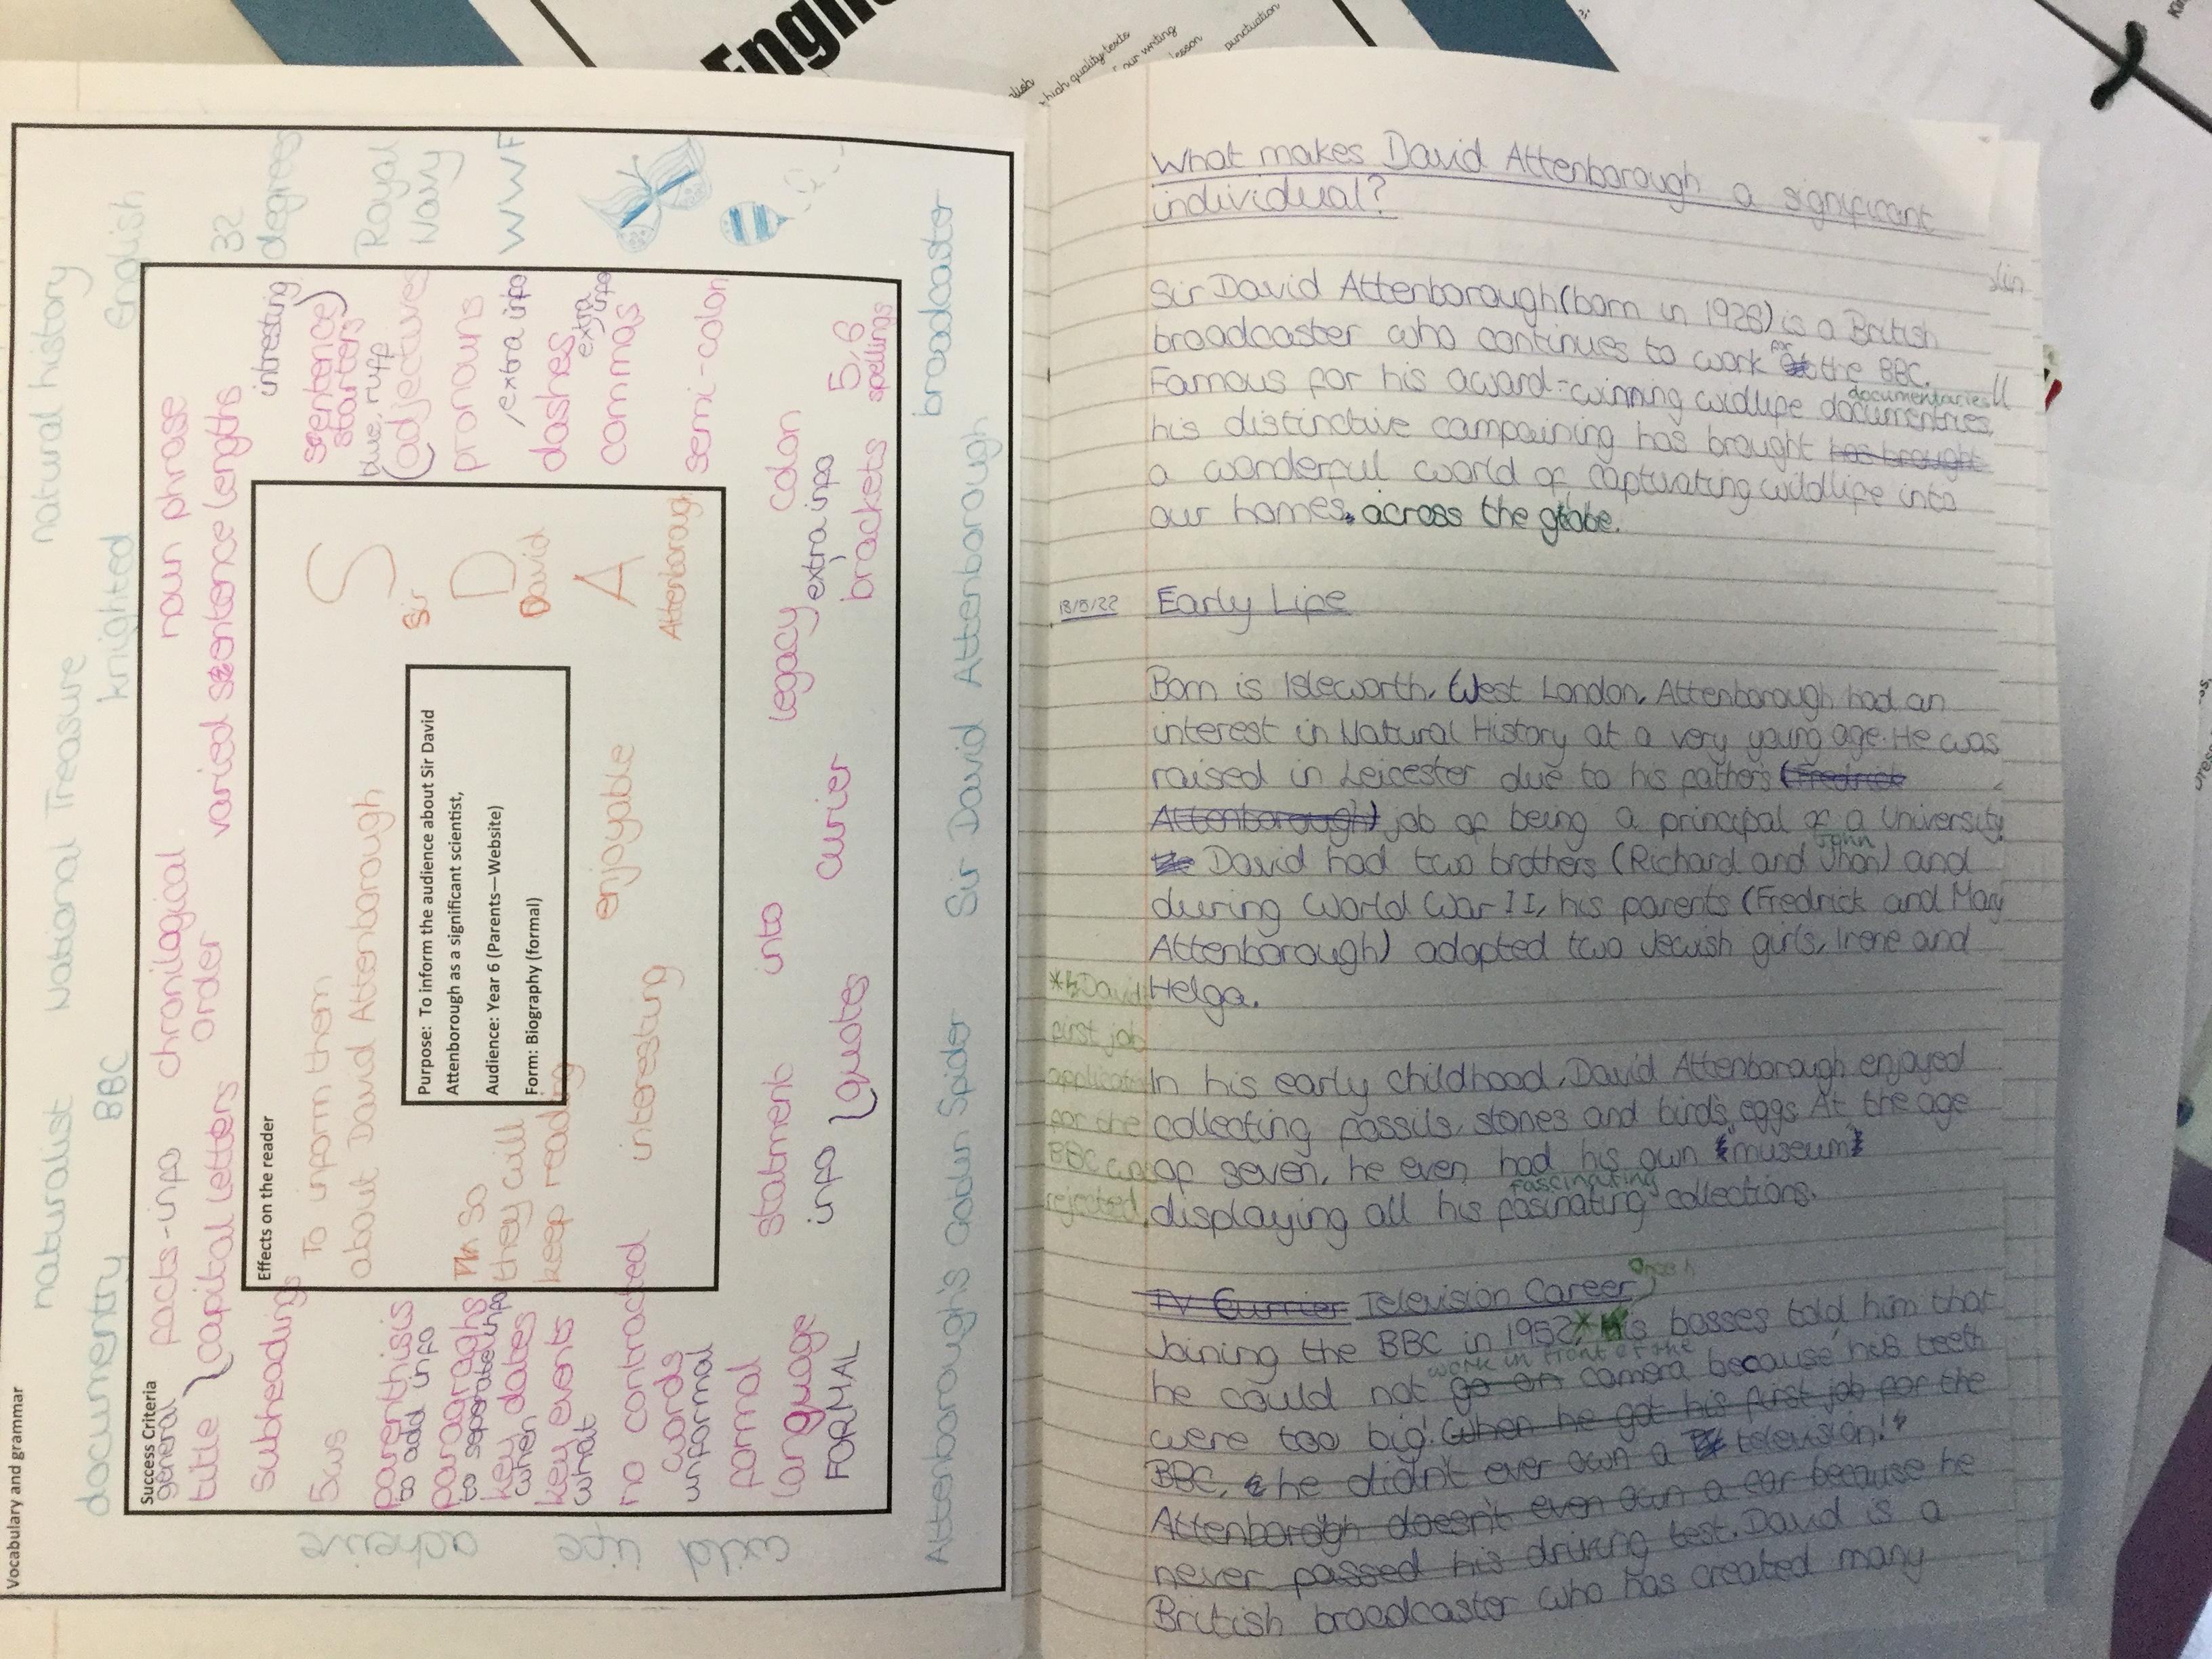 Engl
high quality texts
our writing
lesson
punctuation
Vocabulary and grammar
documentry
naturalist
BBC
National Treasure
knighted
natural history
English
32
degrees
Royal
Navy
WWF
broadcaster
Sir David Attenborough
Attenborough's Goblin Spider
wild
life
acheive
Success Criteria
general
facts-info
title
capital letters
chronilogical
order
noun phrase
varied sentence lengths
subheadings
5ws
parenthisis
to add info
paragraghs
to seperate info
key dates
when
key events
what
no contracted
words
informal
formal
language
FORMAL
intresting
sentence
starters
blue, ruff
(adjectives
pronouns
extra info
dashes
extra info
commas
semi-colon
colon
5,6
spellings
extra info
brackets
legacy
curier
into
quotes
statment
info
Effects on the reader
To inform them
about David Attenborough
so
they will
keep reading
interesting
enjoyable
S
Sir
D
David
A
Attenborough
Purpose: To inform the audience about Sir David
Attenborough as a significant scientist,
Audience: Year 6 (Parents—Website)
Form: Biography (formal)
What makes David Attenborough a significant
individual?
Sir David Attenborough (born in 1926) is a British
broadcaster who continues to work for the BBC.
Famous for his award-winning wildlife documentries,
documentaries
his distinctive campaining has brought has brought
a wonderful world of captivating wildlife into
our homes, across the globe.
18/5/22
Early Life
Born is Isleworth, West London, Attenborough had an
interest in Natural History at a very young age. He was
raised in Leicester due to his fathers (Fredrick
Attenborough) job of being a principal of a University.
David had two brothers (Richard and Jhon) and
John
during World War II, his parents (Fredrick and Mary
Attenborough) adopted two Jewish girls, Irene and
Helga.
David
first job
application
for the
BBC was
rejected.
In his early childhood, David Attenborough enjoyed
collecting fossils, stones and bird's eggs. At the age
of seven, he even had his own museum
displaying all his fasinating collections.
fascinating
TV Currier Television Career
Joining the BBC in 1952,* His bosses told him that
he could not go on camera because his teeth
work in front of the
were too big! When he got his first job for the
BBC, he didn't ever own a television!
Attenborough doesn't even own a car because he
never passed his driving test. David is a
British broadcaster who has created many